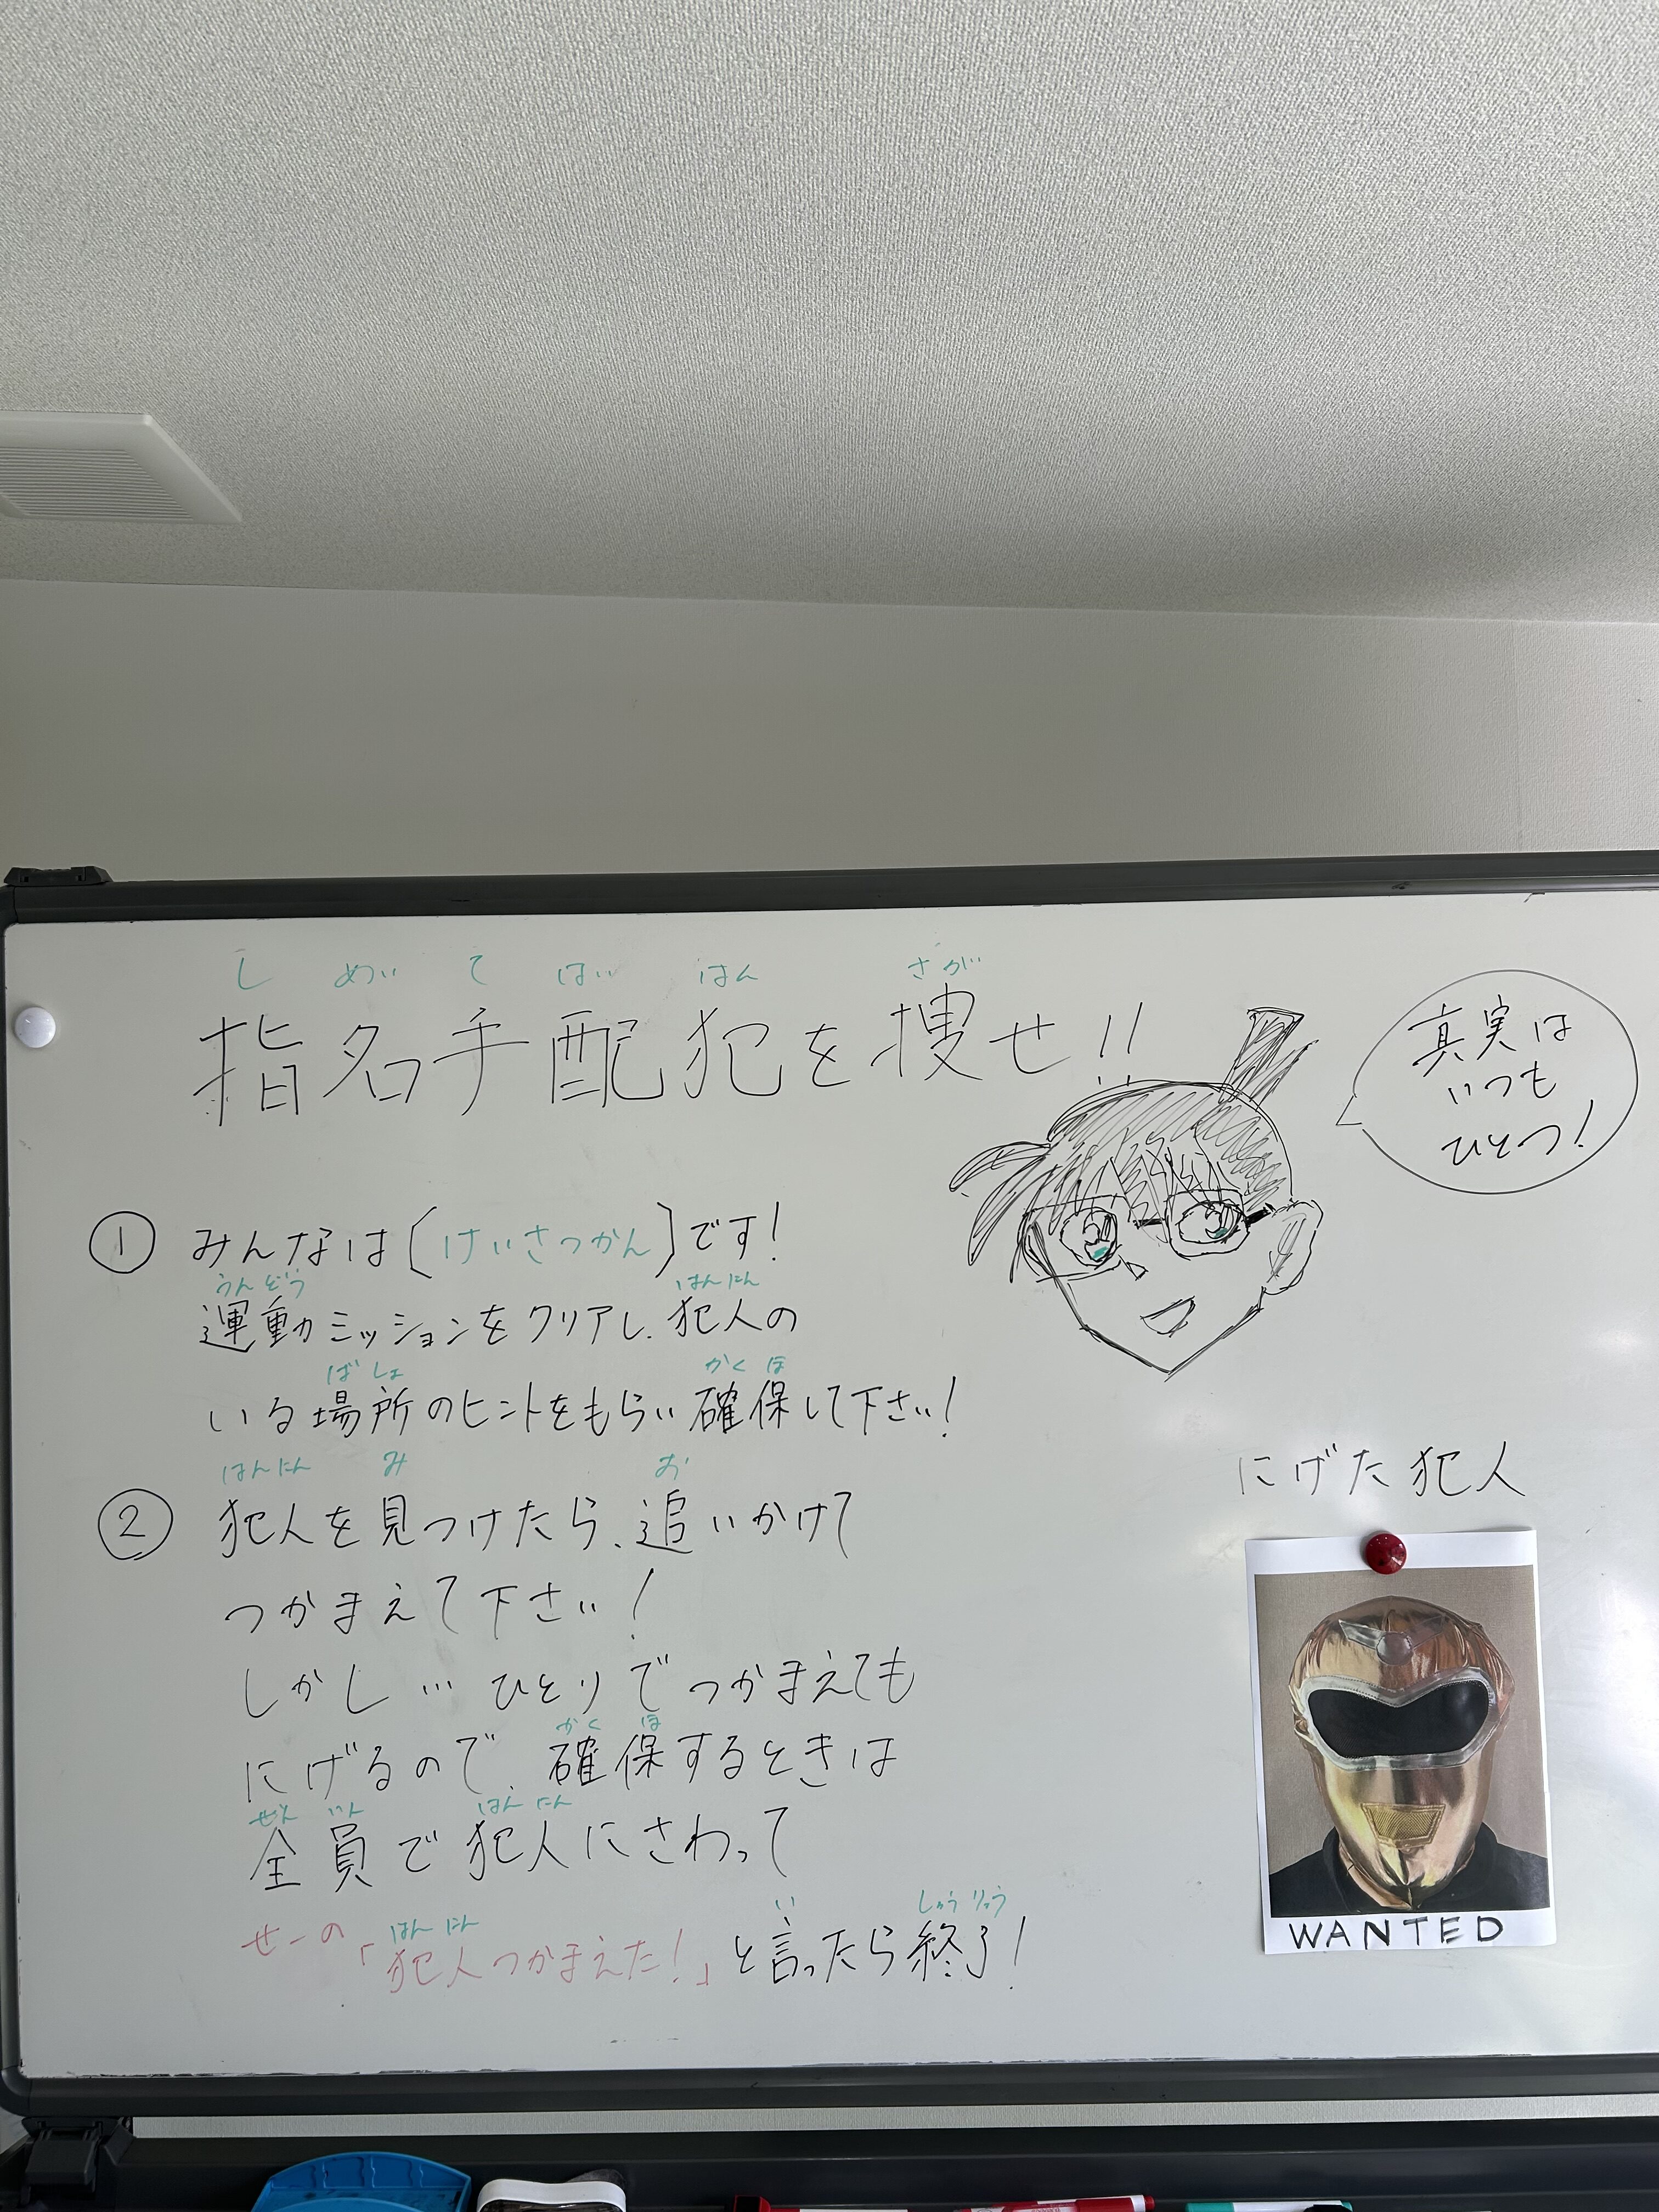 し めい て はい はん さが
指名手配犯を捜せ!!
真実は
いつも
ひとつ!
① みんなは〔けいさつかん〕です!
うんどう はんにん
運動ミッションをクリアし、犯人の
ばしょ かくほ
いる場所のヒントをもらい確保して下さい!
はんにん み お
② 犯人を見つけたら、追いかけて
つかまえて下さい!
しかし… ひとりでつかまえても
かくほ
にげるので、確保するときは
ぜんいん はんにん
全員で犯人にさわって
はんにん い しゅうりょう
せーの「犯人つかまえた!」と言ったら終了!
にげた犯人
WANTED